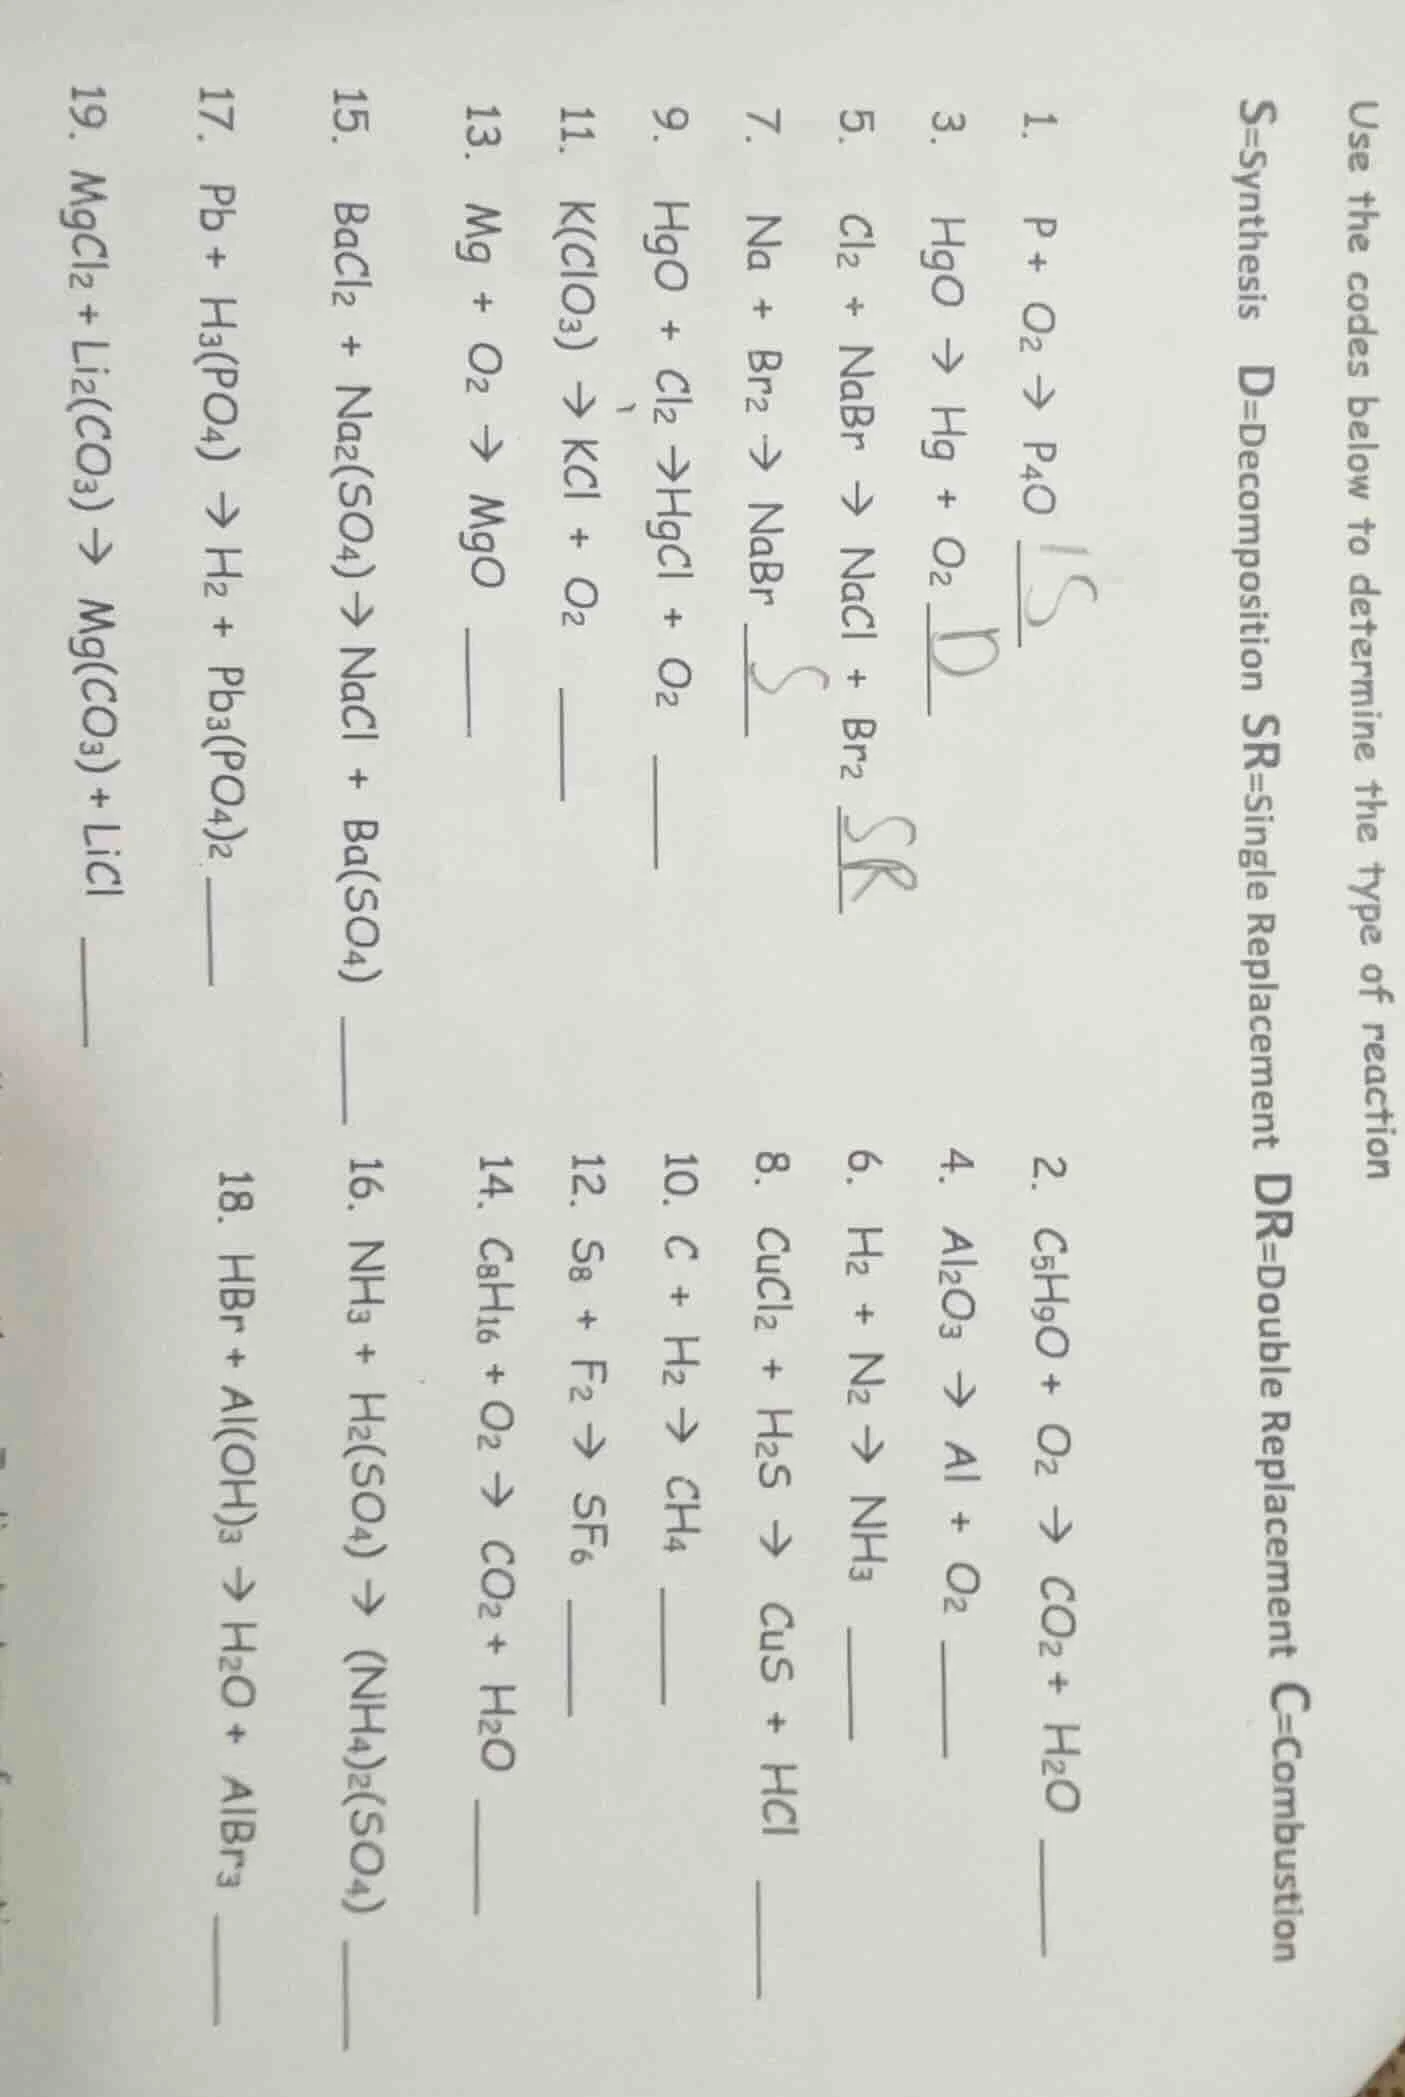 Use the codes below to determine the type of reaction
S=Synthesis D=Decomposition SR=Single Replacement DR=Double Replacement C=Combustion
1. P + O₂ → P₄O S
2. C₅H₉O + O₂ → CO₂ + H₂O ____
3. HgO → Hg + O₂ D
4. Al₂O₃ → Al + O₂ ____
5. Cl₂ + NaBr → NaCl + Br₂ SR
6. H₂ + N₂ → NH₃ ____
7. Na + Br₂ → NaBr S
8. CuCl₂ + H₂S → CuS + HCl ____
9. HgO + Cl₂ →HgCl + O₂ ____
10. C + H₂ → CH₄ ____
11. K(ClO₃) → KCl + O₂ ____
12. S₈ + F₂ → SF₆ ____
13. Mg + O₂ → MgO ____
14. C₈H₁₆ + O₂ → CO₂ + H₂O ____
15. BaCl₂ + Na₂(SO₄) → NaCl + Ba(SO₄) ____
16. NH₃ + H₂(SO₄) → (NH₄)₂(SO₄) ____
17. Pb + H₃(PO₄) → H₂ + Pb₃(PO₄)₂ ____
18. HBr + Al(OH)₃ → H₂O + AlBr₃ ____
19. MgCl₂ + Li₂(CO₃) → Mg(CO₃) + LiCl ____